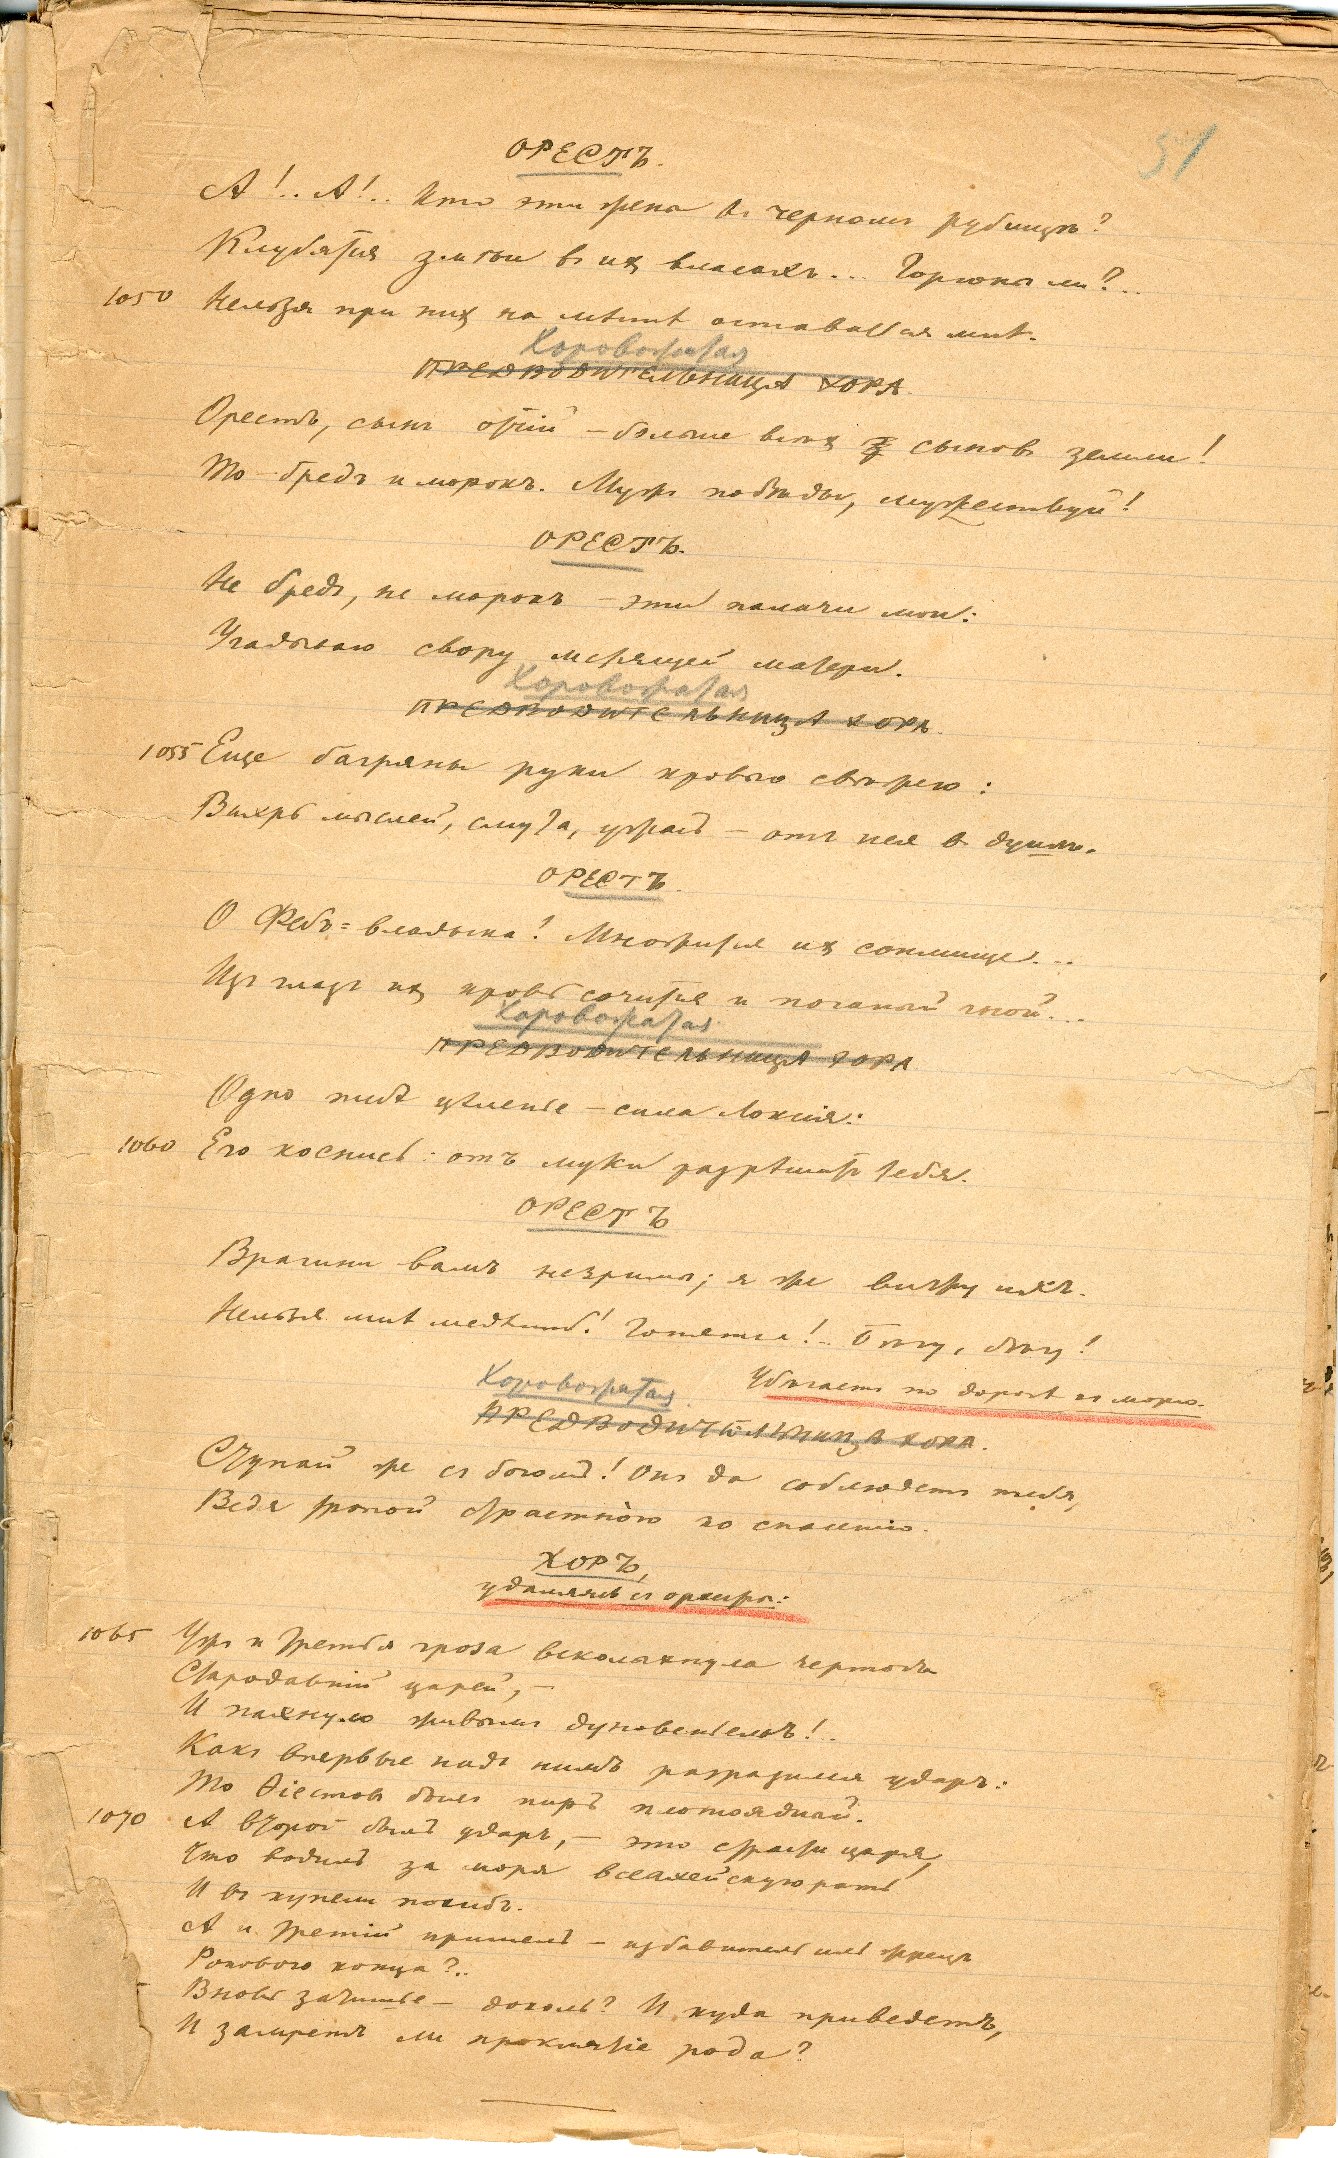 51
ОРЕСТЪ.
А!.. А!.. Кто эти жены въ черномъ рубищѣ?
Клубятся змѣи въ их власахъ... Горгоны ли?..
1050 Нельзя при них на мѣстѣ оставаться мнѣ.
Хоровожатая
ПРЕДВОДИТЕЛЬНИЦА ХОРА.
Орестъ, сынъ отчій – больше всѣх сыновъ земли!
То – бредъ и морокъ. Мужъ побѣды, мужествуй!
ОРЕСТЪ.
Не бредъ, не морокъ – эти палачи мои:
Угадываю свору мстящей матери.
Хоровожатая
ПРЕДВОДИТЕЛЬНИЦА ХОРА.
1055 Еще багряны руки кровью свѣжею:
Вихрь мыслей, смута, ужасъ – отъ нея в душѣ.
ОРЕСТЪ.
О Фебъ-владыка! Множится их сонмище...
Изъ глазъ их кровь сочится и поганый гной...
Хоровожатая
ПРЕДВОДИТЕЛЬНИЦА ХОРА
Одно тебѣ цѣленье – сила Локсія:
1060 Его коснись: отъ муки разрѣшитъ тебя.
ОРЕСТЪ
Врагини вамъ незримы; я же вижу ихъ.
Нельзя мнѣ медлить! Гонятся!.. Бѣгу, бѣгу!
Убѣгаетъ по дорогѣ къ морю.
Хоровожатая.
ПРЕДВОДИТЕЛЬНИЦА ХОРА.
Ступай же съ богомъ! Онъ да соблюдетъ тебя,
Ведя тропой страстно́ю ко спасенію.
ХОРЪ,
удаляясь съ орхестры:
1065 Ужъ и третья гроза всколыхнула чертогъ
Стародавній царей, –
И пахнуло живымъ дуновеньемъ!..
Какъ впервые надъ нимъ разразился ударъ:
То Ѳіестовъ былъ пиръ плотоядный.
1070 А второй былъ ударъ, – это страсти царя,
Что водилъ за моря всеахейскую рать
И въ купели погибъ.
А и третій пришелъ – избавитель иль жрецъ
Рокового конца?..
Вновь затишье – доколь? И куда приведетъ,
И замретъ ли проклятіе рода?